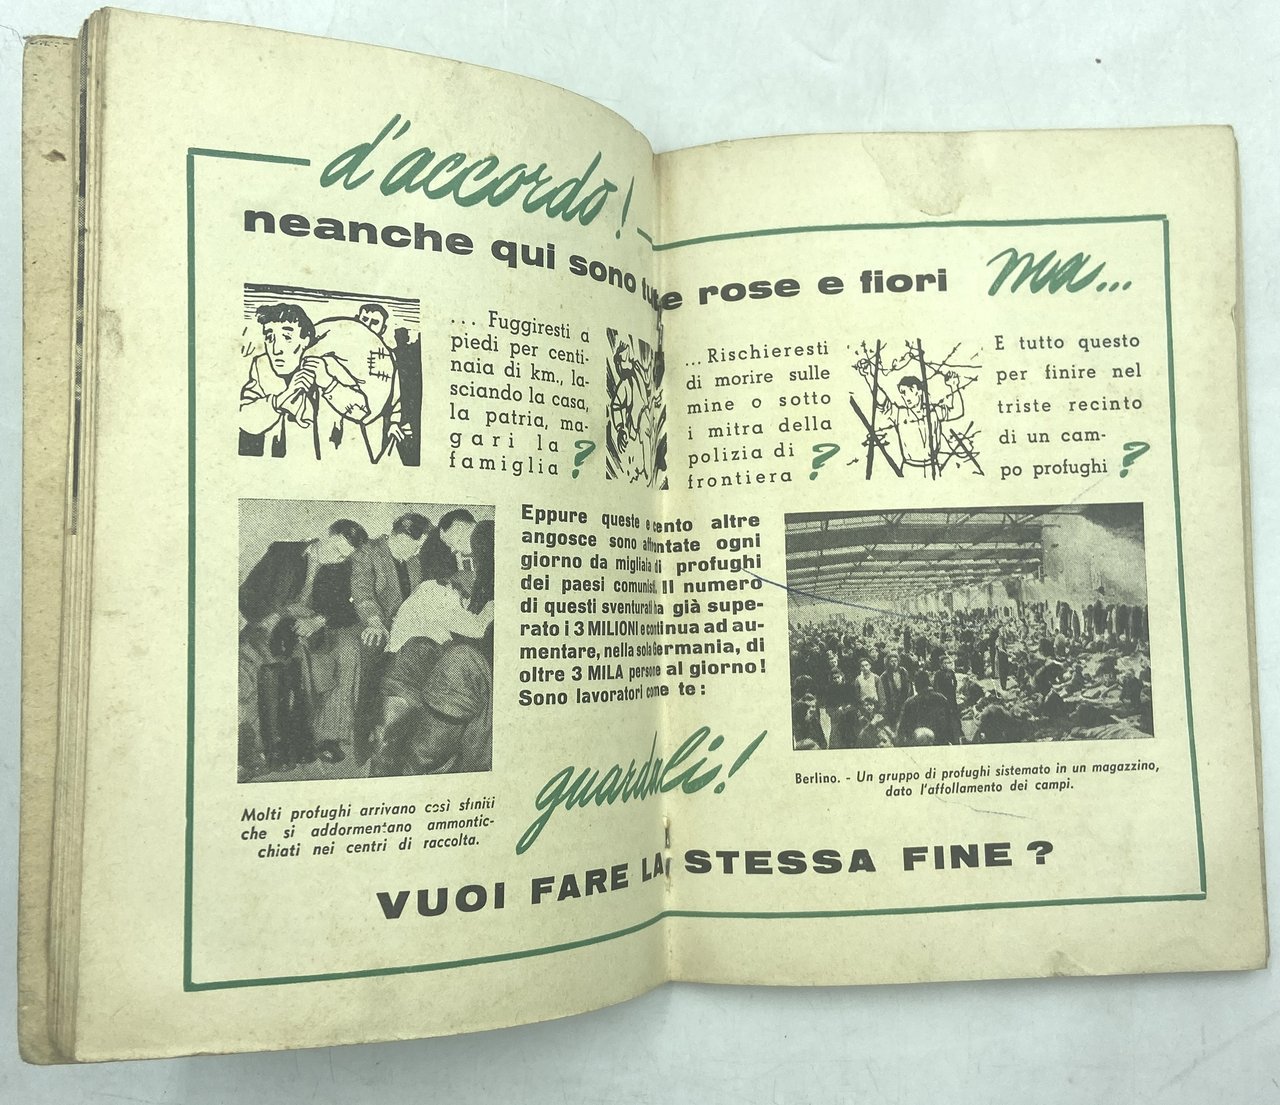 d'accordo!
neanche qui sono tutte rose e fiori ma...
... Fuggiresti a
piedi per centi-
naia di km., la-
sciando la casa,
la patria, ma-
gari la
famiglia ?
... Rischieresti
di morire sulle
mine o sotto
i mitra della
polizia di
frontiera ?
E tutto questo
per finire nel
triste recinto
di un cam-
po profughi ?
Eppure queste e cento altre
angosce sono affrontate ogni
giorno da migliaia di profughi
dei paesi comunisti. Il numero
di questi sventurati ha già supe-
rato i 3 MILIONI e continua ad au-
mentare, nella sola Germania, di
oltre 3 MILA persone al giorno!
Sono lavoratori come te:
guardali!
Molti profughi arrivano così sfiniti
che si addormentano ammontic-
chiati nei centri di raccolta.
Berlino. - Un gruppo di profughi sistemato in un magazzino,
dato l'affollamento dei campi.
VUOI FARE LA STESSA FINE ?